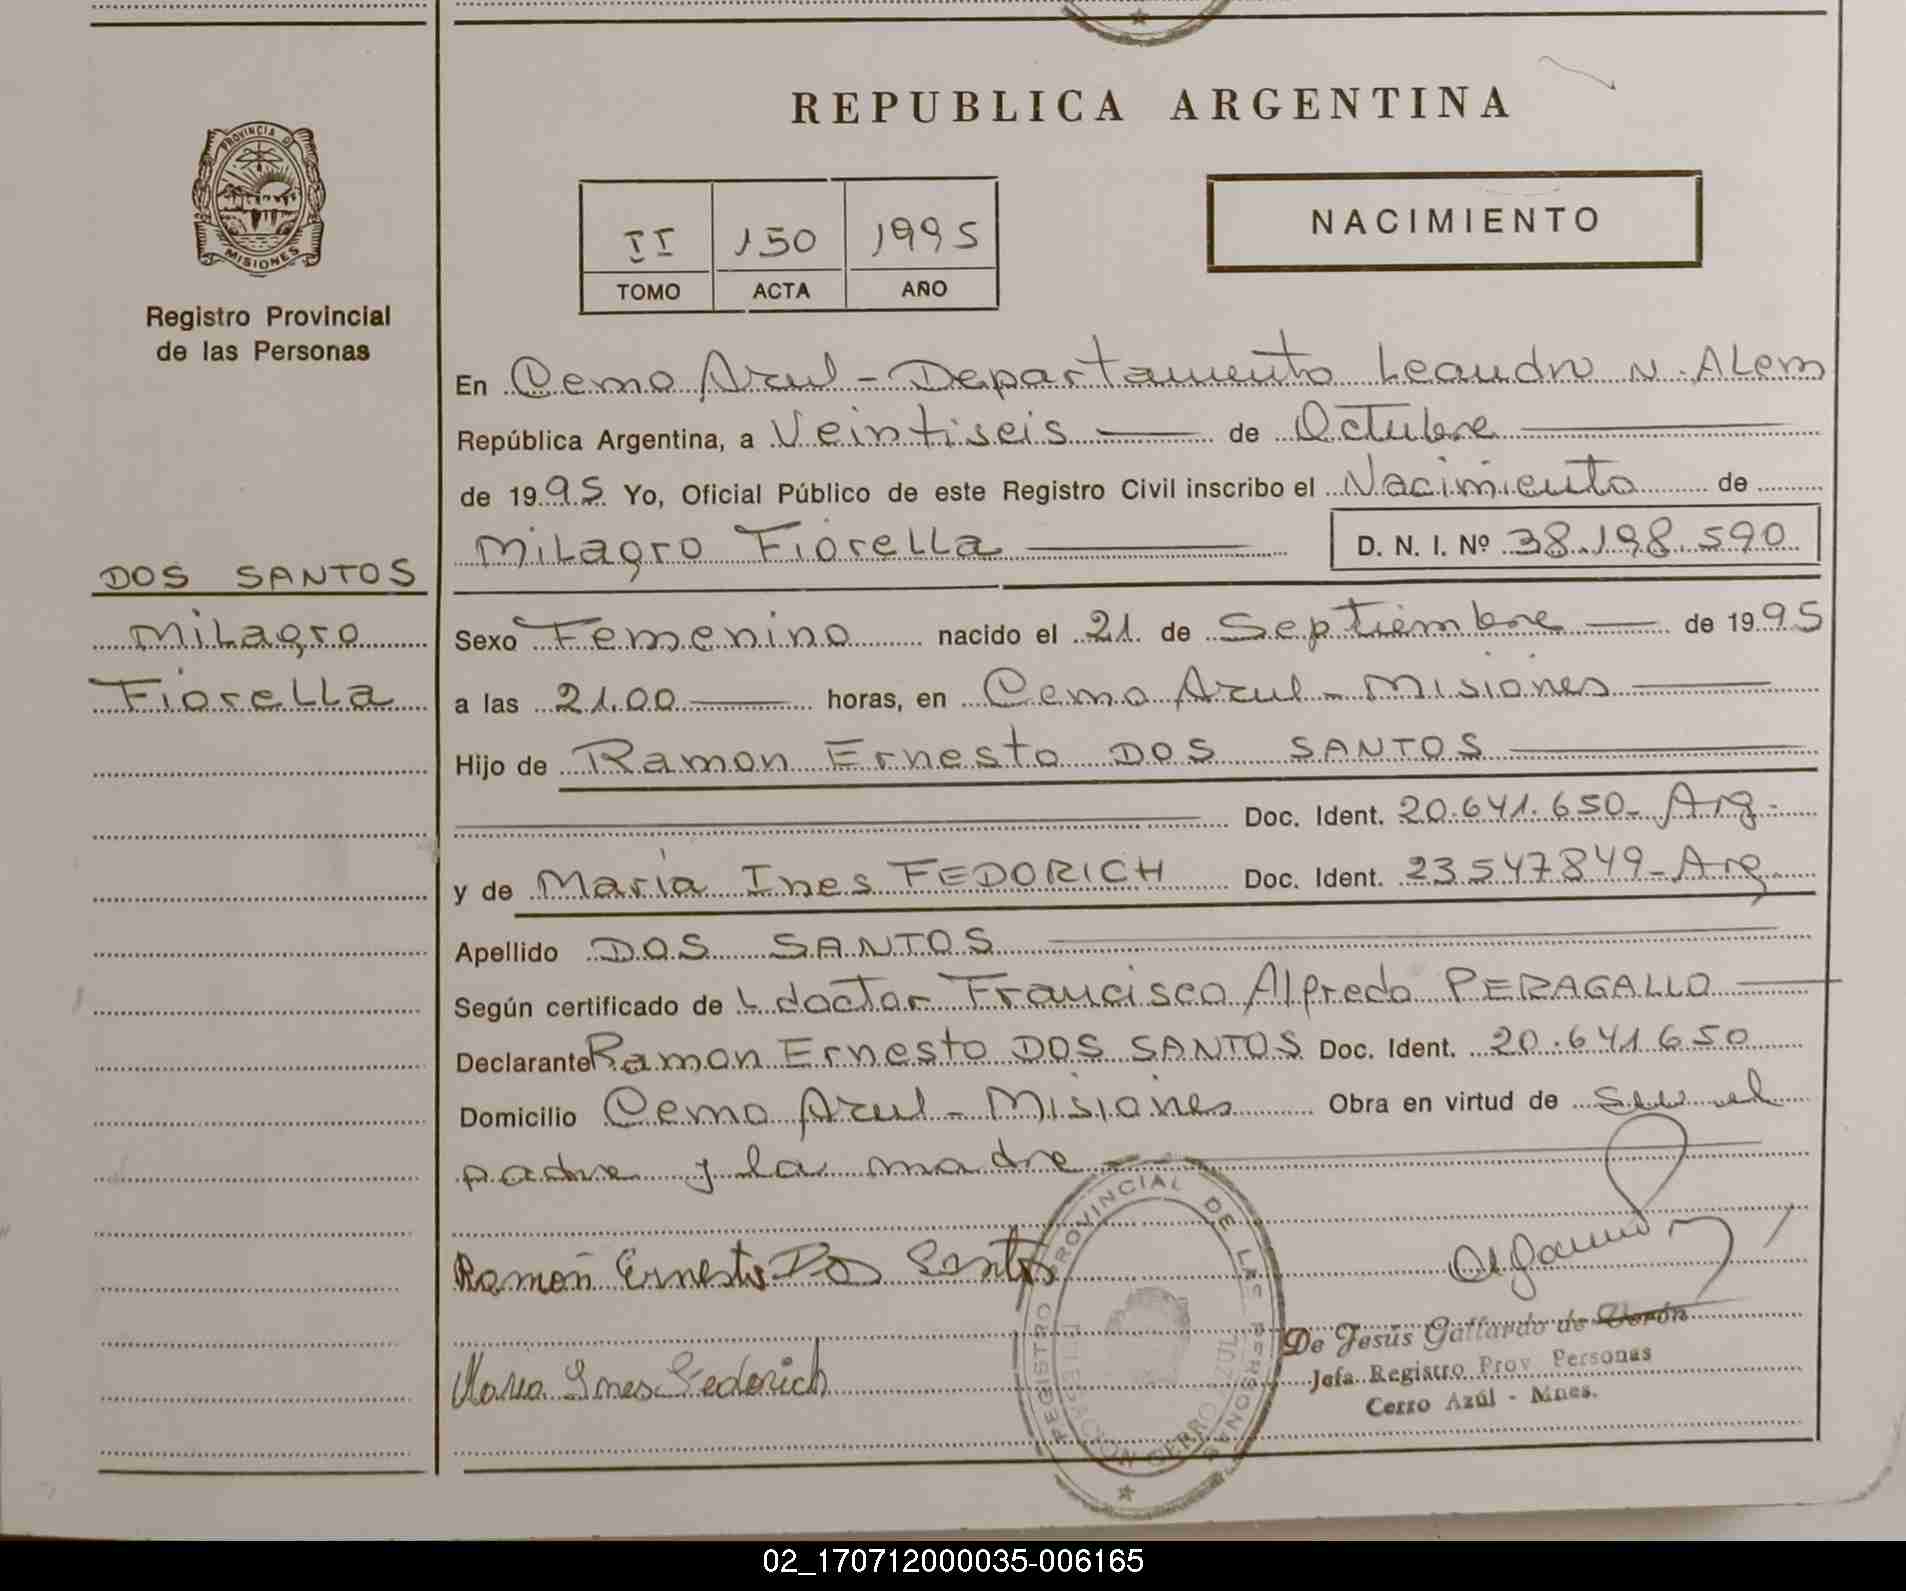 REPUBLICA ARGENTINA
PROVINCIA D
MISIONES
Registro Provincial
de las Personas
II 150 1995
TOMO ACTA AÑO
NACIMIENTO
En Cerro Azul - Departamento Leandro N. Alem
República Argentina, a Veintiseis de Octubre
de 1995 Yo, Oficial Público de este Registro Civil inscribo el Nacimiento de
Milagro Fiorella D. N. I. Nº 38.198.590
DOS SANTOS
Milagro
Fiorella
Sexo Femenino nacido el 21 de Septiembre de 1995
a las 21.00 horas, en Cerro Azul - Misiones
Hijo de Ramon Ernesto DOS SANTOS
Doc. Ident. 20.641.650- Arg.
y de María Ines FEDORICH Doc. Ident. 23547849- Arg
Apellido DOS SANTOS
Según certificado de L doctor Francisco Alfredo PERAGALLO
Declarante Ramon Ernesto DOS SANTOS Doc. Ident. 20.641650
Domicilio Cerro Azul - Misiones Obra en virtud de ser el
padre y la madre
Ramón Ernesto Dos Santos
Maria Ines Fedorich
REGISTRO PROVINCIAL DE LAS PERSONAS
CERRO AZUL
De Jesús Gallardo de Verón
Jefa Registro Prov. Personas
Cerro Azúl - Mnes.
02_170712000035-006165